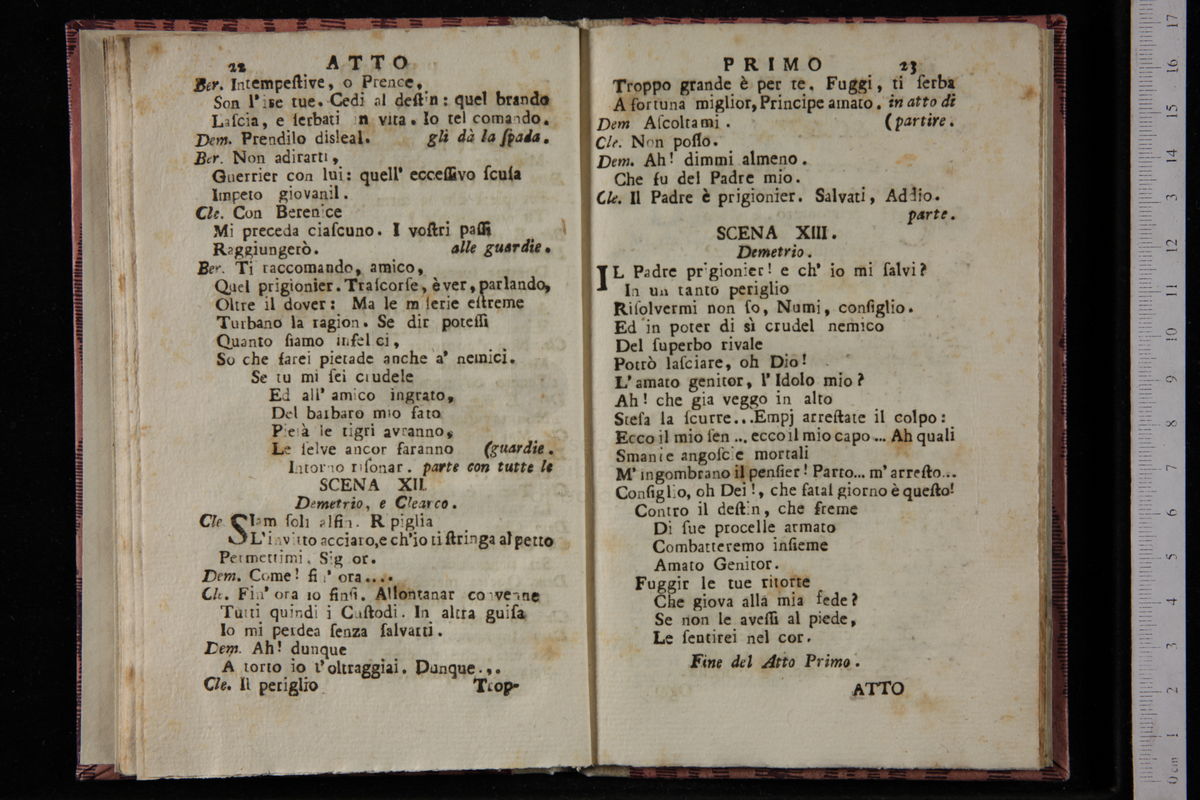 22 ATTO
Ber. Intempeſtive, o Prence,
Son l'ire tue. Cedi al deſtin: quel brando
Laſcia, e ſerbati in vita. Io tel comando.
Dem. Prendilo disleal. gli dà la ſpada.
Ber. Non adirarti,
Guerrier con lui: quell' ecceſſivo ſcuſa
Impeto giovanil.
Cle. Con Berenice
Mi preceda ciaſcuno. I voſtri paſſi
Raggiungerò. alle guardie.
Ber. Ti raccomando, amico,
Quel prigionier. Traſcorſe, è ver, parlando,
Oltre il dover: Ma le miſerie eſtreme
Turbano la ragion. Se dir poteſſi
Quanto ſiamo infelici,
So che farei pietade anche a' nemici.
Se tu mi ſei crudele
Ed all' amico ingrato,
Del barbaro mio fato
Pietà le tigri avranno,
Le ſelve ancor faranno (guardie.
Intorno riſonar. parte con tutte le
SCENA XII.
Demetrio, e Clearco.
Cle SIam ſoli alfin. Ripiglia
L'invitto acciaro, e ch'io ti ſtringa al petto
Permettimi, Signor.
Dem. Come! fin' ora....
Cle. Fin' ora io finſi. Allontanar convenne
Tutti quindi i Cuſtodi. In altra guiſa
Io mi perdea ſenza ſalvarti.
Dem. Ah! dunque
A torto io t'oltraggiai. Dunque...
Cle. Il periglio Trop-
PRIMO 23
Troppo grande è per te. Fuggi, ti ſerba
A fortuna miglior, Principe amato. in atto di
Dem Aſcoltami. (partire.
Cle. Non poſſo.
Dem. Ah! dimmi almeno.
Che fu del Padre mio.
Cle. Il Padre è prigionier. Salvati, Addio.
parte.
SCENA XIII.
Demetrio.
IL Padre prigionier! e ch' io mi ſalvi?
In un tanto periglio
Riſolvermi non ſo, Numi, conſiglio.
Ed in poter di sì crudel nemico
Del ſuperbo rivale
Potrò laſciare, oh Dio!
L'amato genitor, l'Idolo mio?
Ah! che gia veggo in alto
Steſa la ſcurre...Empj arreſtate il colpo:
Ecco il mio ſen ... ecco il mio capo ... Ah quali
Smanie angoſcie mortali
M'ingombrano il penſier! Parto... m'arreſto...
Conſiglio, oh Dei!, che fatal giorno è queſto!
Contro il deſtin, che freme
Di ſue procelle armato
Combatteremo inſieme
Amato Genitor.
Fuggir le tue ritorte
Che giova alla mia fede?
Se non le aveſſi al piede,
Le ſentirei nel cor.
Fine del Atto Primo.
ATTO
0 cm 1 2 3 4 5 6 7 8 9 10 11 12 13 14 15 16 17